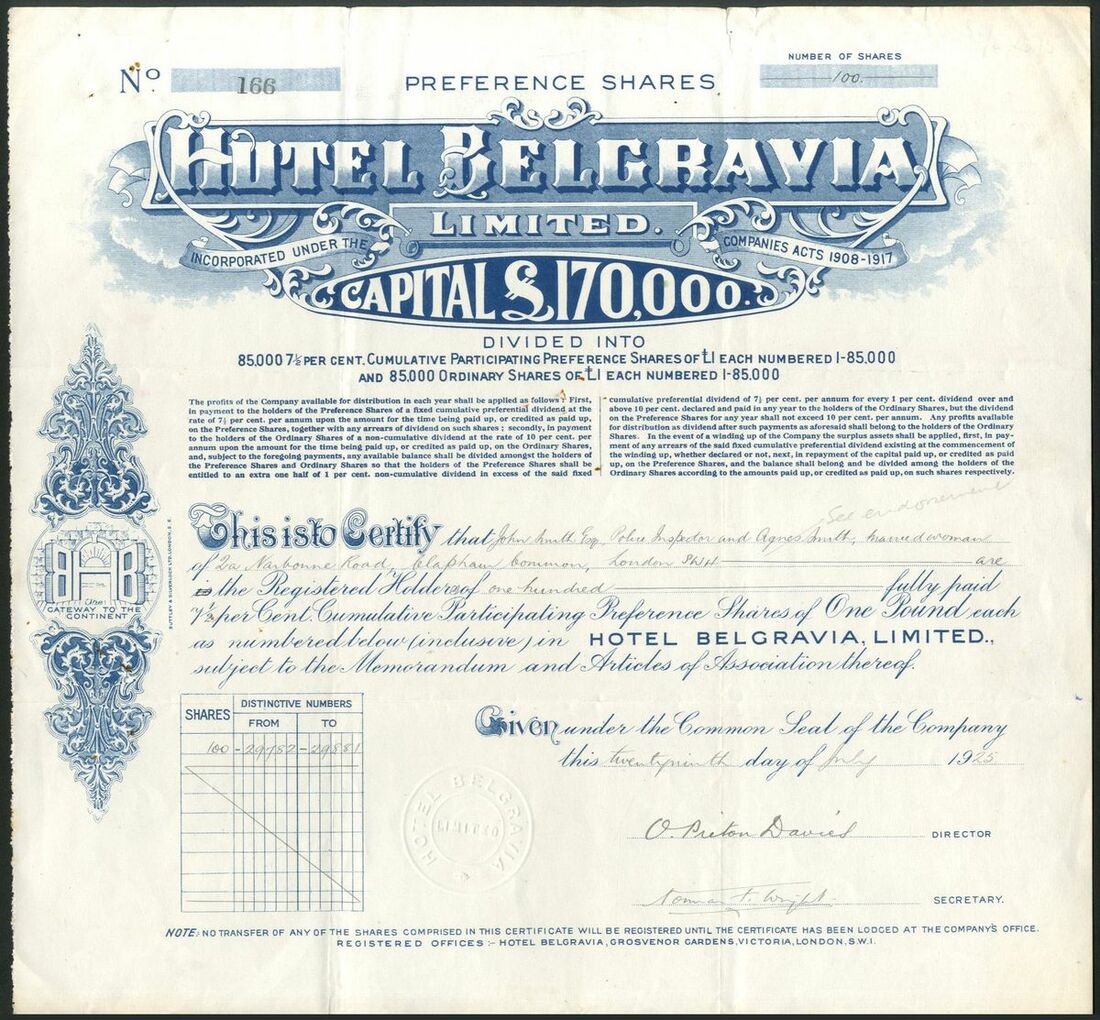 No 166
PREFERENCE SHARES
NUMBER OF SHARES
100.
HOTEL BELGRAVIA
LIMITED.
INCORPORATED UNDER THE COMPANIES ACTS 1908-1917
CAPITAL £170,000.
DIVIDED INTO
85,000 7½ PER CENT. CUMULATIVE PARTICIPATING PREFERENCE SHARES OF £1 EACH NUMBERED 1-85,000
AND 85,000 ORDINARY SHARES OF £1 EACH NUMBERED 1-85,000
The profits of the Company available for distribution in each year shall be applied as follows: First,
in payment to the holders of the Preference Shares of a fixed cumulative preferential dividend at the
rate of 7½ per cent. per annum upon the amount for the time being paid up, or credited as paid up,
on the Preference Shares, together with any arrears of dividend on such shares; secondly, in payment
to the holders of the Ordinary Shares of a non-cumulative dividend at the rate of 10 per cent. per
annum upon the amount for the time being paid up, or credited as paid up, on the Ordinary Shares,
and, subject to the foregoing payments, any available balance shall be divided amongst the holders of
the Preference Shares and Ordinary Shares so that the holders of the Preference Shares shall be
entitled to an extra one half of 1 per cent. non-cumulative dividend in excess of the said fixed
cumulative preferential dividend of 7½ per cent. per annum for every 1 per cent. dividend over and
above 10 per cent. declared and paid in any year to the holders of the Ordinary Shares, but the dividend
on the Preference Shares for any year shall not exceed 10 per cent. per annum. Any profits available
for distribution as dividend after such payments as aforesaid shall belong to the holders of the Ordinary
Shares. In the event of a winding up of the Company the surplus assets shall be applied, first, in pay-
ment of any arrears of the said fixed cumulative preferential dividend existing at the commencement of
the winding up, whether declared or not, next, in repayment of the capital paid up, or credited as paid
up, on the Preference Shares, and the balance shall belong and be divided among the holders of the
Ordinary Shares according to the amounts paid up, or credited as paid up, on such shares respectively.
See endorsement
This is to Certify that John Smith Esq. Police Inspector and Agnes Smith, married woman
of 2a Narbonne Road, Clapham Common, London SW4 are
is the Registered Holders of one hundred fully paid
7½ per Cent. Cumulative Participating Preference Shares of One Pound each
as numbered below (inclusive) in HOTEL BELGRAVIA, LIMITED.,
subject to the Memorandum and Articles of Association thereof.
BHB
GATEWAY TO THE
CONTINENT
SHARES DISTINCTIVE NUMBERS
FROM TO
100 - 29782 - 29881
Given under the Common Seal of the Company
this twentyninth day of July 1925.
HOTEL BELGRAVIA
LIMITED
O. Picton Davies DIRECTOR
Norman F. Wright SECRETARY.
NOTE: NO TRANSFER OF ANY OF THE SHARES COMPRISED IN THIS CERTIFICATE WILL BE REGISTERED UNTIL THE CERTIFICATE HAS BEEN LODGED AT THE COMPANY'S OFFICE.
REGISTERED OFFICES:- HOTEL BELGRAVIA, GROSVENOR GARDENS, VICTORIA, LONDON, S.W.1.